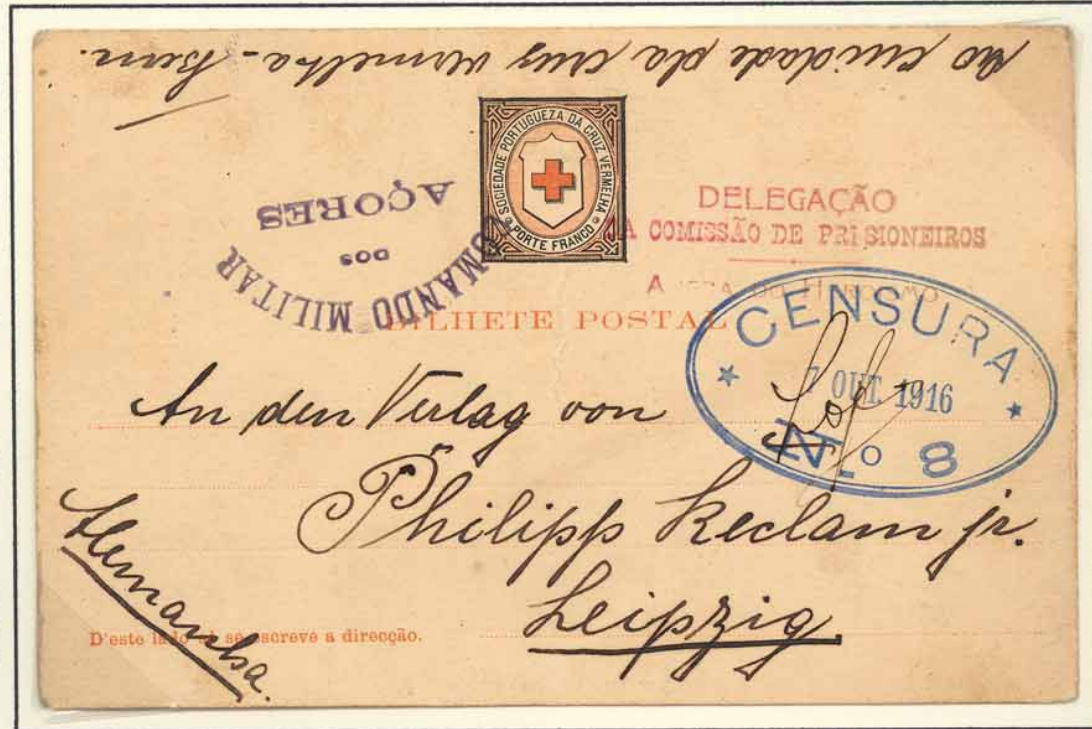 Ao cuidado da cruz vermelha - Bern.
SOCIEDADE PORTUGUEZA DA CRUZ VERMELHA
PORTE FRANCO
COMANDO MILITAR
DOS
AÇORES
DELEGAÇÃO
DA COMISSÃO DE PRISIONEIROS
BILHETE POSTAL
CENSURA
7 OUT. 1916
N.o 8
An den Verlag von
Philipp Reclam jr.
Leipzig.
Alemanha.
D'este lado só se escreve a direcção.